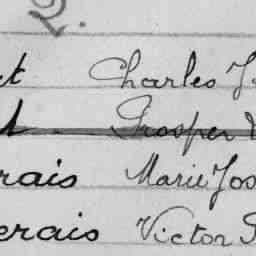 2.
et Charles J
t Prosper
rais Marie Jos
erais Victor